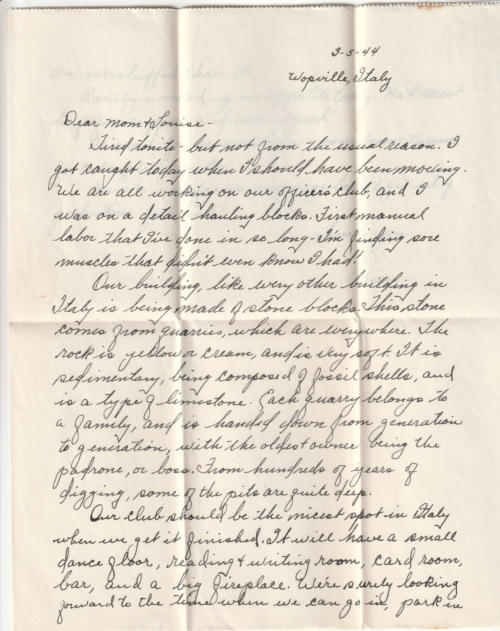 3-5-44
Wopville, Italy
Dear Mom & Louise-
Tired tonite- but not from the usual reason. I
got caught today when I should have been moving.
We are all working on our officers club, and I
was on a detail hauling blocks. First manual
labor that I've done in so long- I'm finding sore
muscles that didn't even know I had!
Our building, like every other building in
Italy is being made of stone blocks. This stone
comes from quarries, which are everywhere. The
rock is yellow or cream, and is very soft. It is
sedimentary, being composed of fossil shells, and
is a type of limestone. Each quarry belongs to
a family, and is handed down from generation
to generation, with the oldest owner being the
padrone, or boss. From hundreds of years of
digging, some of the pits are quite deep.
Our club should be the nicest spot in Italy
when we get it finished. It will have a small
dance floor, reading & writing room, card room,
bar, and a big fireplace. We're surely looking
forward to the time when we can go in, park in
an overstuffed chair